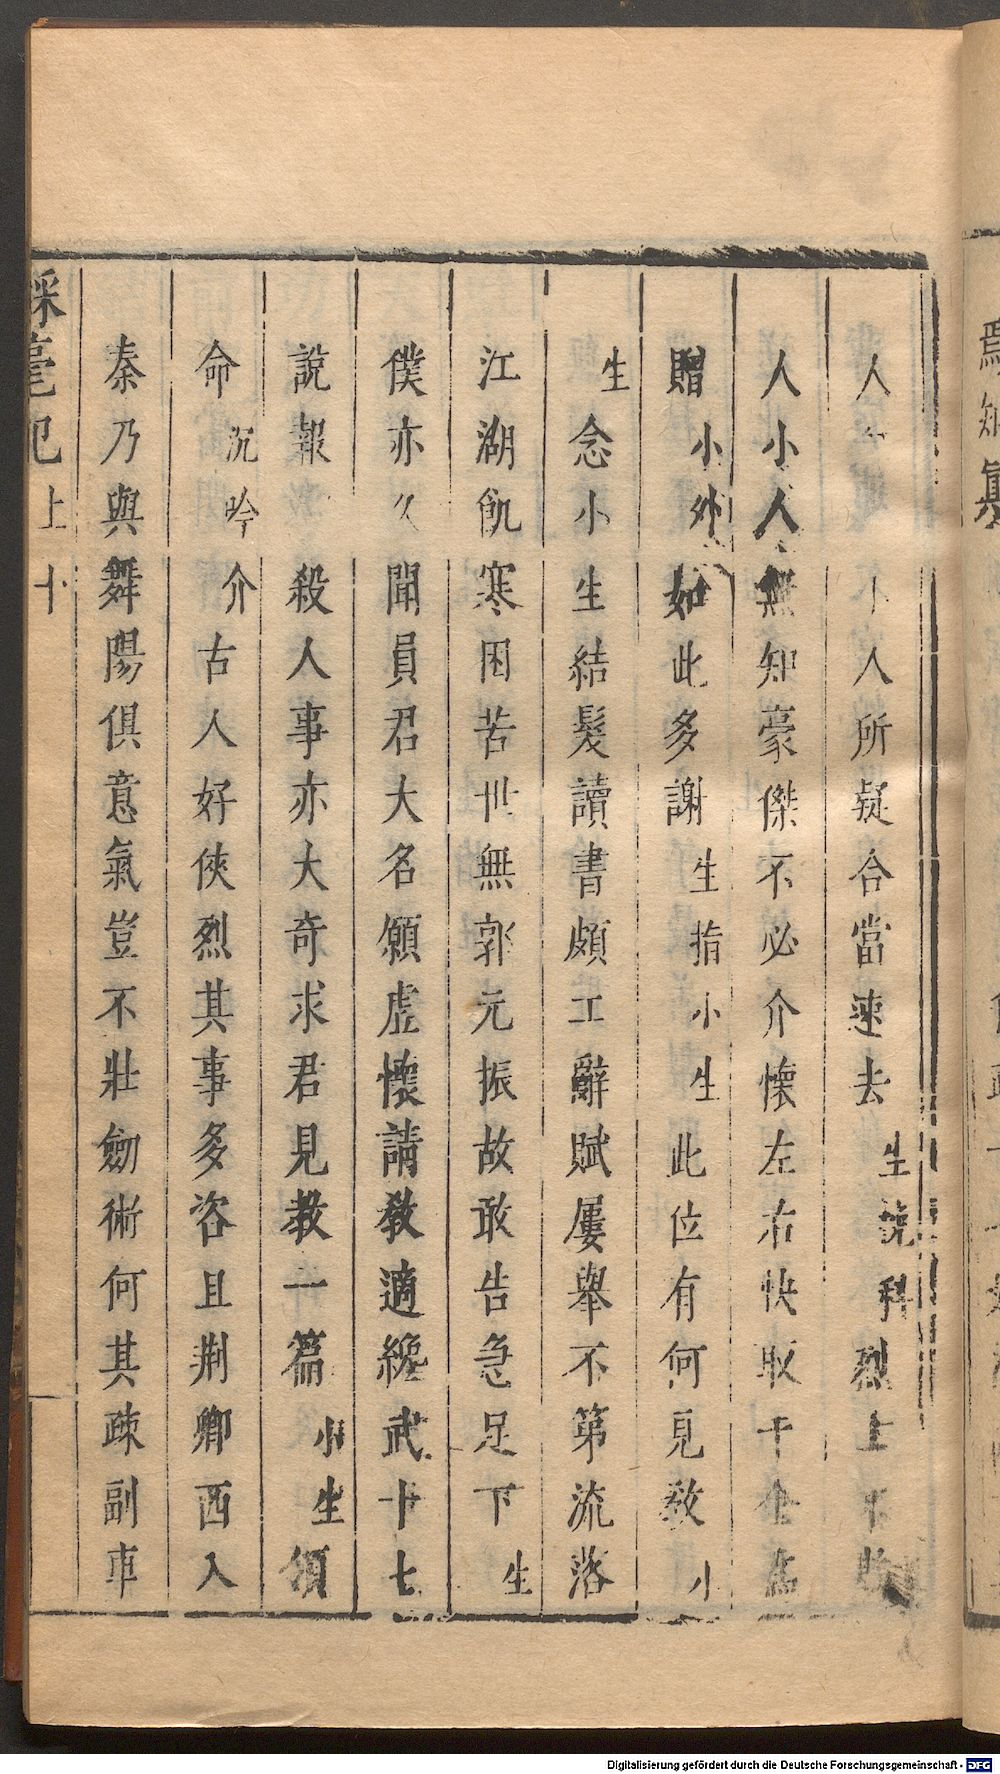 人 小人所疑合當速去生說科烈士不
人小人無知豪傑不必介懷左右快取千金為
贈小外如此多謝生指小生此位有何見教小
生念小生結髮讀書頗工辭賦屢舉不第流落
江湖飢寒困苦世無郭元振故敢告急足下生
僕亦久聞員君大名願虛懷請教適纔武十七
說報 殺人事亦大奇求君見教一篇小生領
命沉吟介古人好俠烈其事多咨且荆卿西入
秦乃與舞陽俱意氣豈不壯劒術何其疎副車
彩毫記上 十
Digitalisierung gefördert durch die Deutsche Forschungsgemeinschaft - DFG